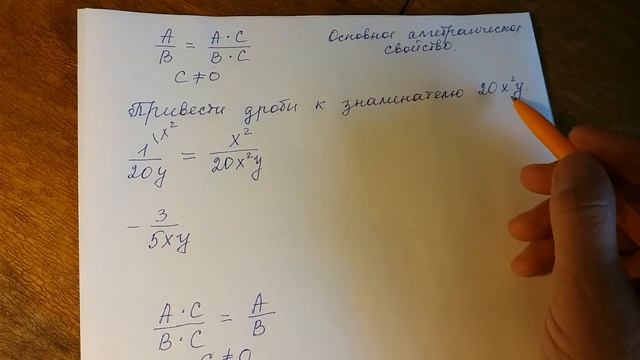 A/B = A·C/B·C
C≠0
Основное алгебраическое
свойство.
Привести дроби к знаменателю 20x²y.
1\x²/20y = x²/20x²y
- 3/5xy
A·C/B·C = A/B
C≠0